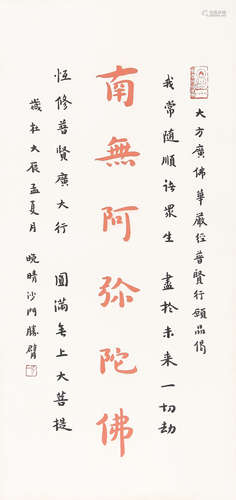 大方廣佛華嚴經普賢行願品偈
我常隨順諸眾生 盡於未來一切劫
南無阿弥陀佛
恒修普賢廣大行 圓滿无上大菩提
歲在大辰孟夏月 晚晴沙門勝臂